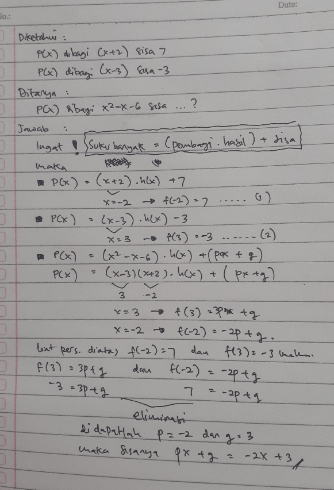 No.:
Date:
Diketahui :
P(x) dibagi (x+2) sisa 7
P(x) dibagi (x-3) sisa -3
Ditanya :
P(x) dibagi x²-x-6 sisa ... ?
Jawab :
Ingat ! Suku banyak = (pembagi . hasil) + sisa
maka
▪ P(x) = (x+2) . h(x) +7
x=-2 → f(-2) = 7 ..... (1)
▪ P(x) = (x-3) . h(x) - 3
x=3 → f(3) = -3 ...... (2)
▪ P(x) = (x²-x-6) . h(x) + (px + q)
P(x) = (x-3)(x+2) . h(x) + ( px +q)
3 -2
x=3 → f(3) = 3p +q
x=-2 → f(-2) = -2p + q .
pers. diatas, f(-2)=7 dan f(3)= -3 maka.
f(3) = 3p+q dan f(-2) = -2p+q
-3 = 3p+q 7 = -2p+q
eliminasi
didapatlah p= -2 dan q = 3
maka sisanya px + q = -2x +3